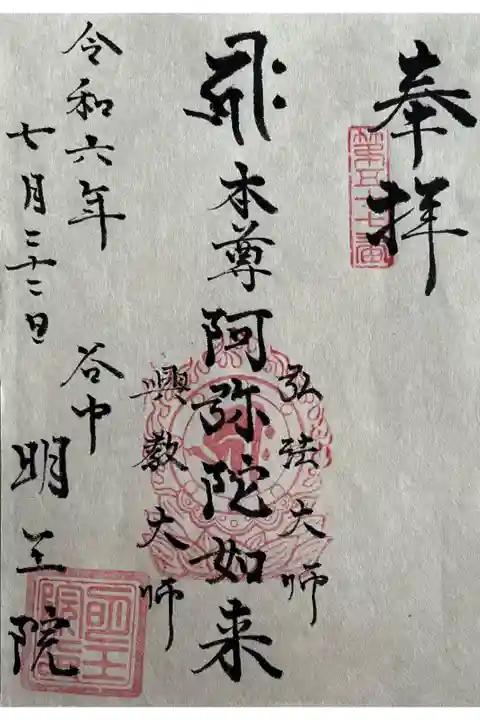 奉拝
第五十七番
弘法大師
𑖮𑖿𑖨𑖱𑖾 本尊阿弥陀如来
興教大師
令和六年
七月二十二日
谷中 明王院